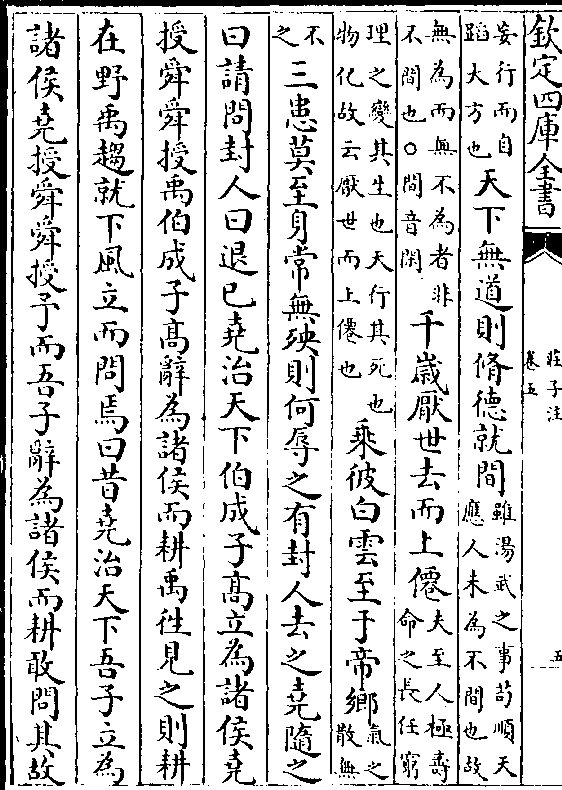 欽定四庫全書
莊子注
卷五
五
妄行而自
蹈大方也
天下無道則脩德就閒
雖湯武之事苟順天
應人未為不閒也故
無為而無不為者非
不閒也○閒音閑
千嵗厭世去而上僊
夫至人極壽
命之長任窮
理之變其生也天行其死也
物化故云厭世而上僊也
乘彼白雲至于帝鄉
氣之
散無
不
之
三患莫至身常無殃則何辱之有封人去之堯隨之
曰請問封人曰退已堯治天下伯成子髙立為諸侯堯
授舜舜授禹伯成子髙辭為諸侯而耕禹徃見之則耕
在野禹趨就下風立而問焉曰昔堯治天下吾子立為
諸侯堯授舜舜授予而吾子辭為諸侯而耕敢問其故